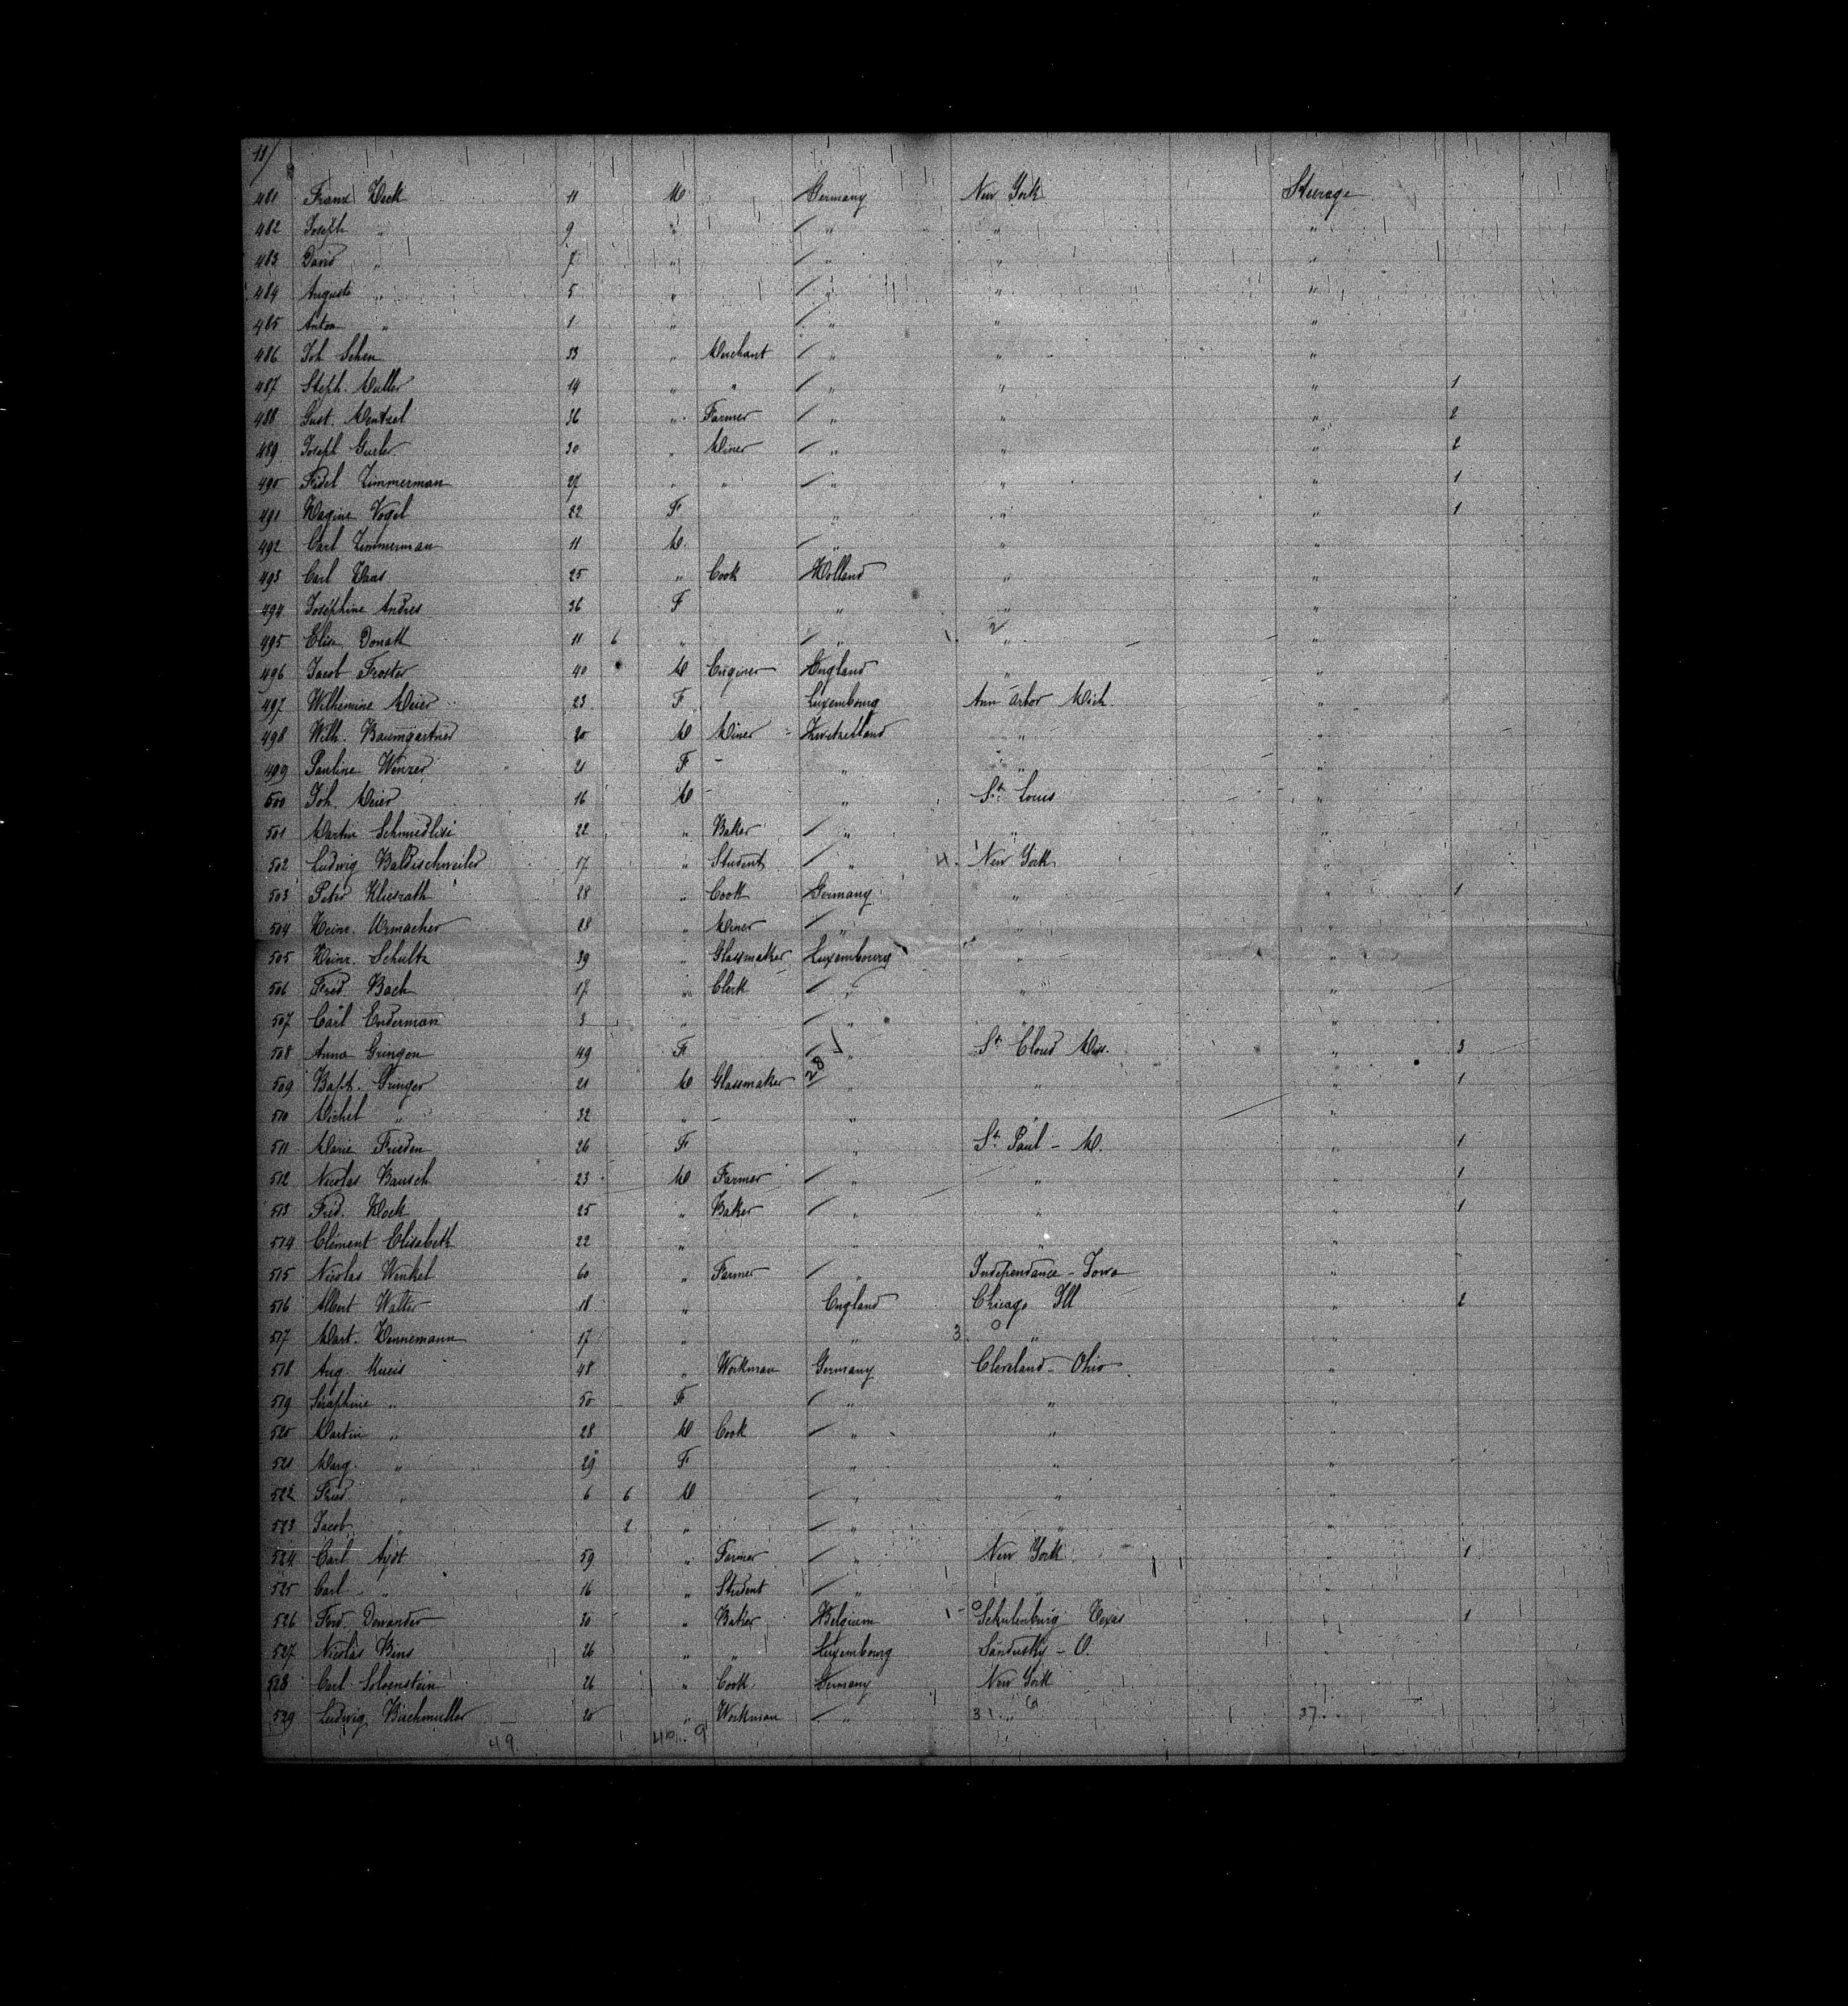 11/
481 Franz Heck 11 M Germany New York Steerage
482 Joseph " 9 " " " "
483 David " 7 " " " "
484 Auguste " 5 " " " "
485 Anton " 1 " " " "
486 Joh Schen 33 " Merchant " " "
487 Steph. Muller 14 " " " " " 1
488 Gust. Mentzel 36 " Farmer " " " 2
489 Joseph 30 " Miner " " " 2
490 Fidel Zimmerman 27 " " " " " 1
491 Vogel 22 F " " " 1
492 Carl Zimmerman 11 M " " "
493 Carl Haas 25 " Cook Holland " "
494 Joséphine Andres 36 F " " "
495 Elise Donath 11 6 " " " "
496 Jacob Froster 40 M Enginer England " "
497 Wilhemine Meier 23 F Luxembourg Ann Arbor Mich. "
498 Wilh. Baumgartner 20 M Miner Zwitzerland " "
499 Pauline Winzer 21 F - " " "
500 Joh. Meier 16 M - " St. Louis "
501 Martin Schmidlisi 22 " Baker " " "
502 Ludwig Baldischweiler 17 " Student " 4. New York "
503 Peter Kliesrath 28 " Cook Germany " " 1
504 Heinr. Urmacher 28 " Miner " " "
505 Heinr. Schultz 39 " Glassmaker Luxembourg " "
506 Fred. Bach 17 " Clerk " " "
507 Carl Enderman 3 " " " "
508 Anna Gringon 49 F " St. Cloud " 3
509 Bapt. Gringer 21 M Glassmaker 28 " " " 1
510 Michel " 32 " - " " "
511 Marie Frieden 26 F " St. Paul - M. " 1
512 Nicolas Bausch 23 M Farmer " " " 1
513 Fred. Hock 25 " Baker " " " 1
514 Clément Elisabeth 22 " " " "
515 Nicolas Wenkel 60 " Farmer " Independance - Iowa "
516 Albert Walter 18 " England Chicago Ill " 2
517 Mart. Hennemann 17 " " 3 0 " "
518 Aug. 48 " Workman Germany Cleveland - Ohio "
519 Séraphine " 50 F " " "
520 Martin " 28 M Cook " " "
521 Marg. " 29 F " " "
522 Fried " 6 6 M " " "
523 Jacob " 2 " " " "
524 Carl Aydt 59 " Farmer " New York " 1
525 Carl " 16 " Student " " "
526 Ferd. Dewander 30 " Baker Belgium Schulenburg Texas " 1
527 Nicolas Bins 26 " " Luxembourg Sandusky - O. "
528 Carl Soloenstein 26 " Cook Germany New York "
529 Ludwig Buchmuller 20 " Workman " 31 " 37
49 40 9